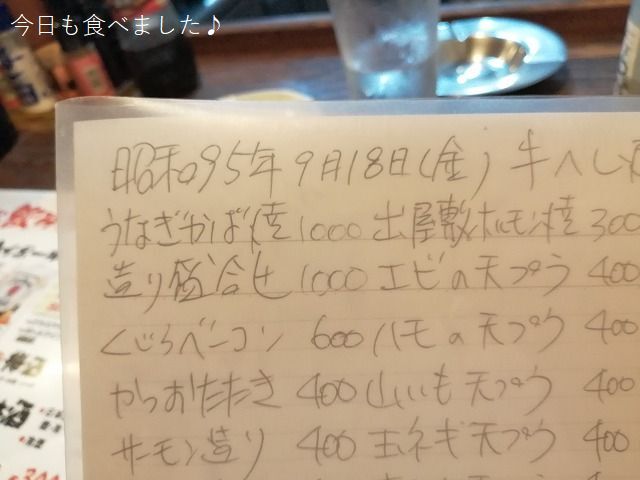 今日も食べました♪
昭和95年9月18日(金) 牛へし
うなぎかば焼 1000 出屋敷ホルモン焼 300
造り盛合せ 1000 エビの天プラ 400
くじらベーコン 600 ハモの天プラ 400
かつおたたき 400 山いも天プラ 400
サーモン造り 400 玉ネギ天プラ 400